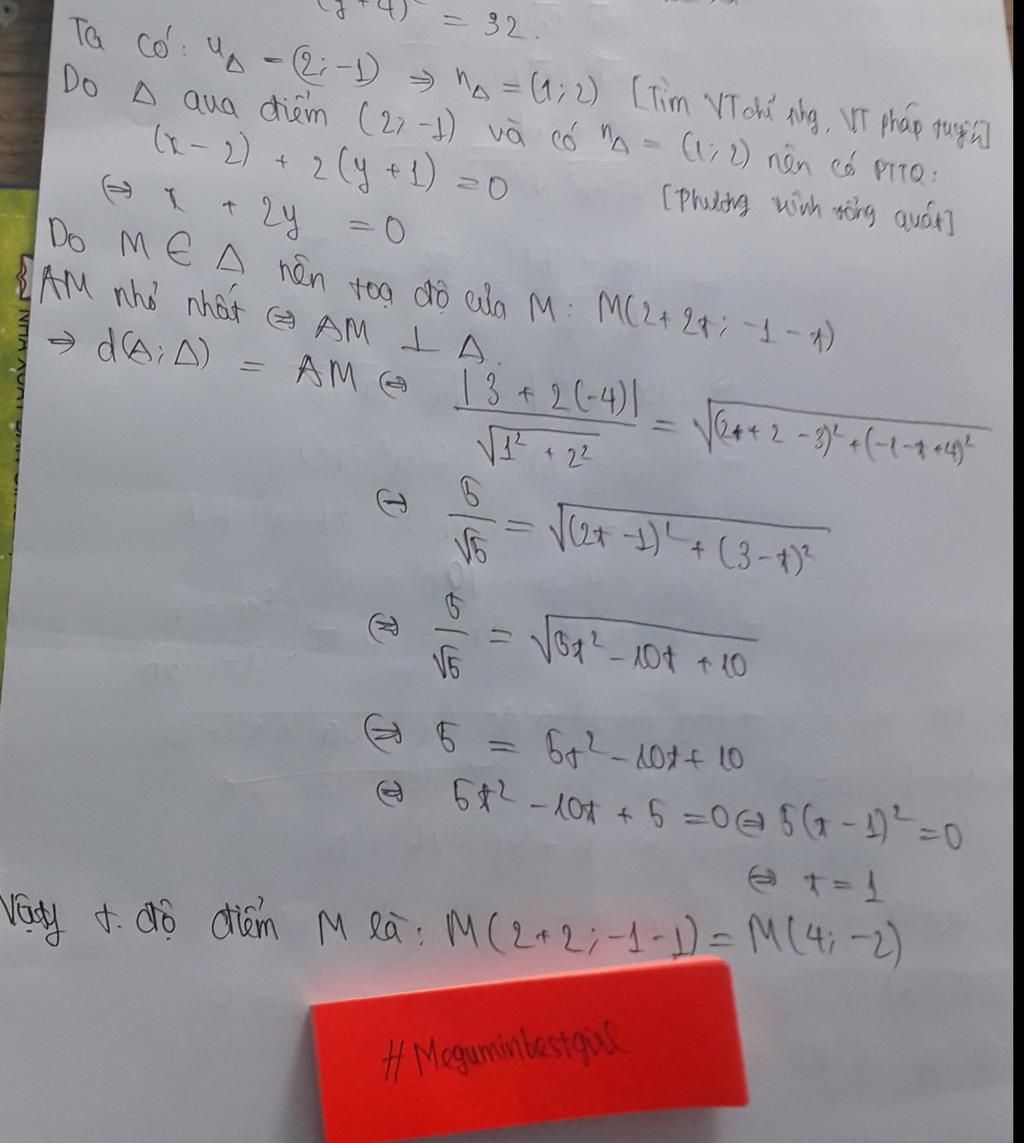 (y+4)² = 32.
Ta có: u_Δ = (2; -1) ⇒ n_Δ = (1; 2) [Tìm VT chỉ phg, VT pháp tuyến]
Do Δ qua điểm (2; -1) và có n_Δ = (1; 2) nên có PTTQ:
(x - 2) + 2(y + 1) = 0 [Phương trình tổng quát]
⇔ x + 2y = 0
Do M ∈ Δ nên toạ độ của M: M(2+2t; -1-t)
AM nhỏ nhất ⇔ AM ⊥ Δ.
⇒ d(A; Δ) = AM ⇔ |3 + 2(-4)| / √(1² + 2²) = √((2t+2-3)² + (-1-t+4)²)
⇔ 5/√5 = √((2t-1)² + (3-t)²)
⇔ 5/√5 = √(5t² - 10t + 10)
⇔ 5 = 5t² - 10t + 10
⇔ 5t² - 10t + 5 = 0 ⇔ 5(t - 1)² = 0
⇔ t = 1
Vậy t. độ điểm M là: M(2+2; -1-1) = M(4; -2)
#Meguminbestgirl
NHÀ XUẤT BẢN